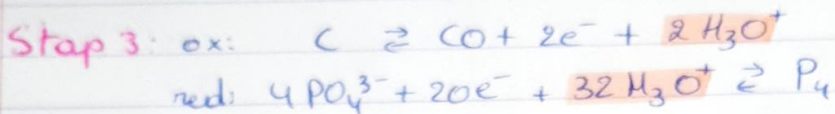 Stap 3: ox: C ⇄ CO + 2e⁻ + 2 H₃O⁺
red: 4 PO₄³⁻ + 20e⁻ + 32 H₃O⁺ ⇄ P₄